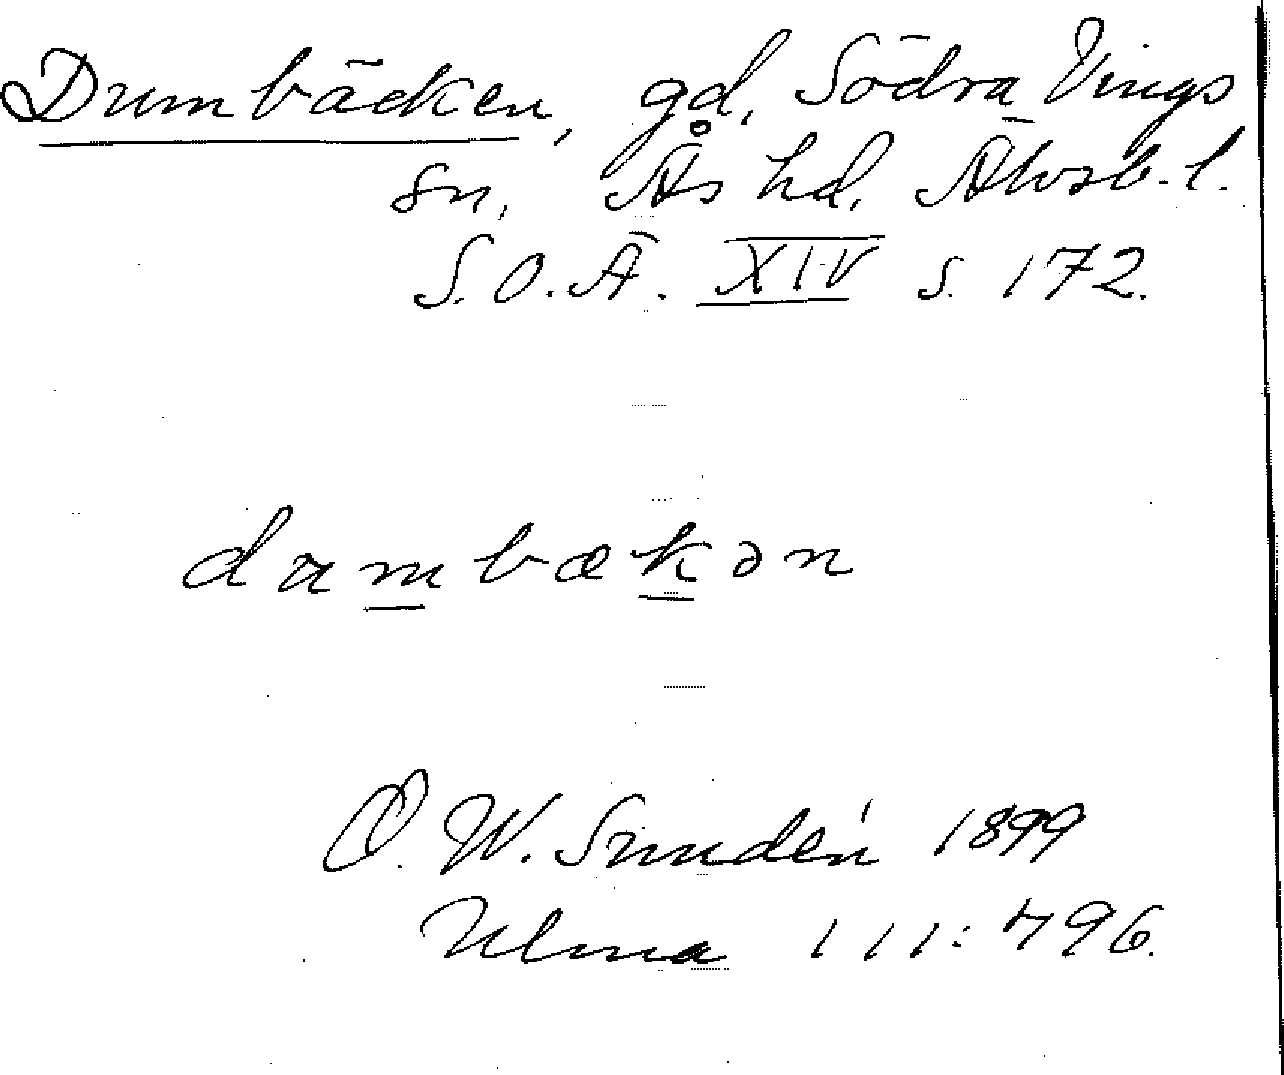 Dumbäcken, gd, Södra Vings
sn, Ås hd, Älvsb. l.
S. O. Ä. XIV s. 172.
dambækən
D. W. Sundén 1899
Ulma 111:796.